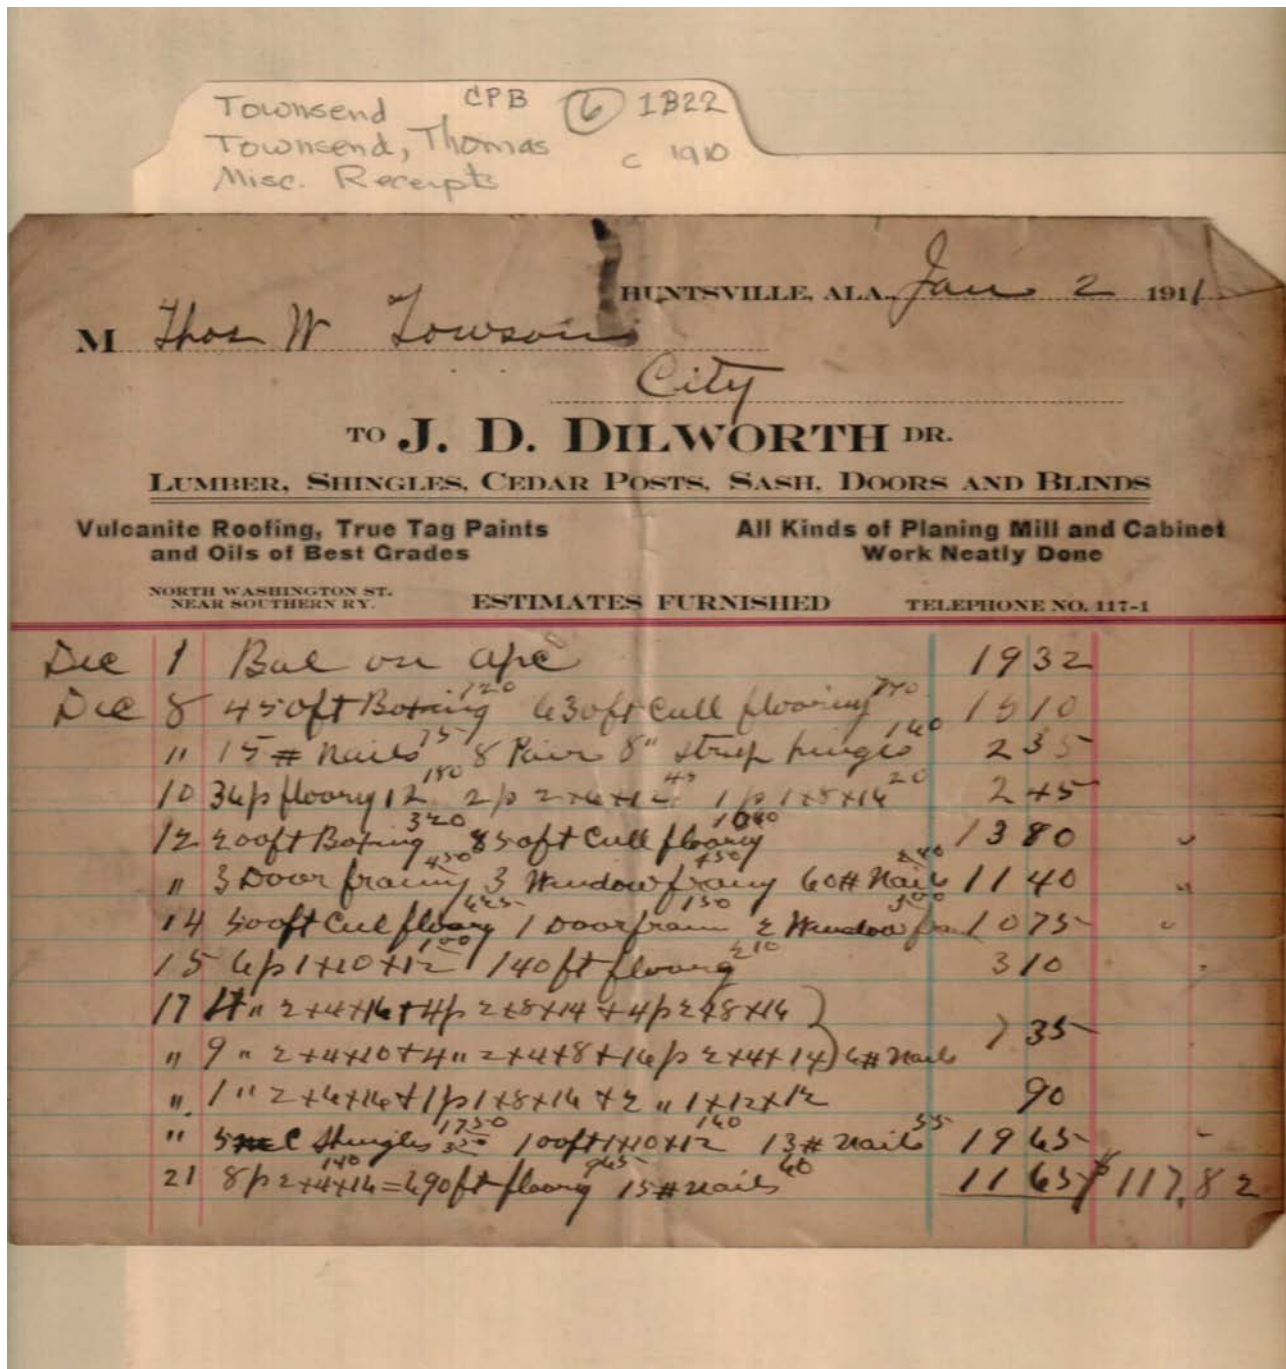 Townsend CPB 6 1B22
Townsend, Thomas c 1910
Misc. Receipts
HUNTSVILLE, ALA., Jan 2 1911
M Thos W Towson
City
TO J. D. DILWORTH DR.
LUMBER, SHINGLES, CEDAR POSTS, SASH, DOORS AND BLINDS
Vulcanite Roofing, True Tag Paints
and Oils of Best Grades
All Kinds of Planing Mill and Cabinet
Work Neatly Done
NORTH WASHINGTON ST.
NEAR SOUTHERN RY.
ESTIMATES FURNISHED
TELEPHONE NO. 117-1
Dec 1 Bal on 19 32
Dec 8 450ft Boxing 720 630ft Cull flooring 15 10
" 15 # Nails 75 8 Pair 8" strap hinges 160 2 35
10 36p floorg 12 180 2p 2+6+12 45 1p 1+8+14 20 2 45
12 200ft Boxing 320 850ft Cull floorg 1060 13 80
" 3 Door frams 450 3 Window frams 450 60# Nails 240 11 40
14 500ft Cul floorg 625 1 Door fram 150 2 Window fram 300 10 75
15 6p 1+10+12 100 140ft floorg 210 3 10
17 4" 2+4+16+4p 2+8+14+4p 2+8+16
" 9 " 2+4+10+4" 2+4+8+16p 2+4+14 6# Nails 7 35
" 1 " 2+6+16+1p 1+8+16+2 " 1+12+12 90
" 5 Shingles 1750 350 100ft 1+10+12 160 13# Nails 55 19 65
21 8p 2+4+14= 140 690ft floorg 965 15# Nails 60 11 65 $117.82